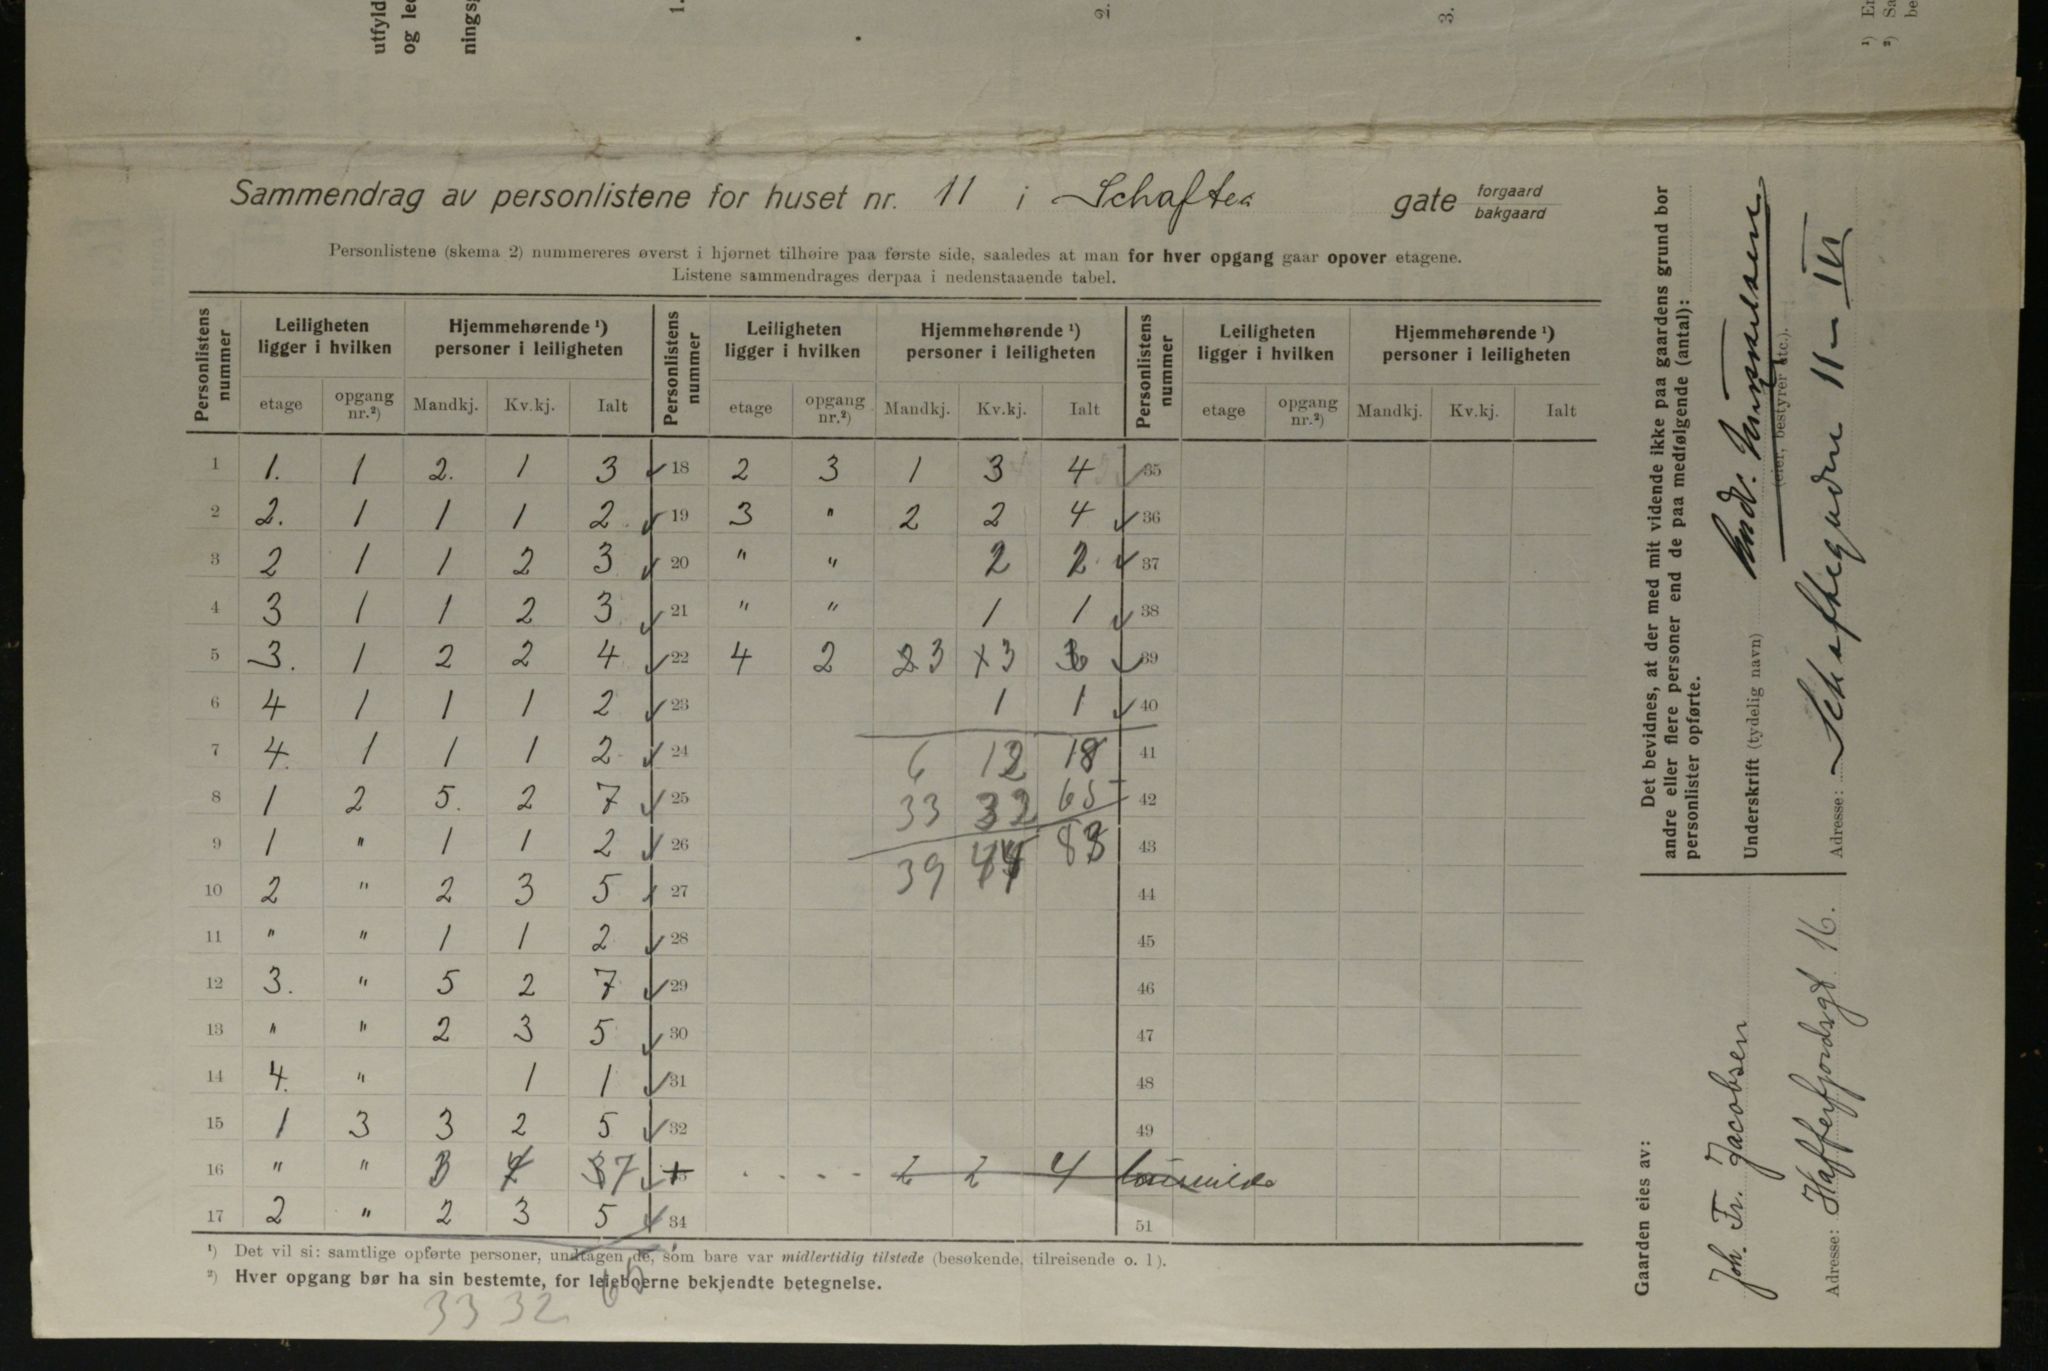 utfyld
og led
nings
1.
2.
3.
¹) En
²) Sa
be
Sammendrag av personlistene for huset nr. 11 i Schaftes gate forgaard bakgaard
Personlistene (skema 2) nummereres øverst i hjørnet tilhøire paa første side, saaledes at man for hver opgang gaar opover etagene.
Listene sammendrages derpaa i nedenstaaende tabel.
Personlistens nummer | Leiligheten ligger i hvilken | Hjemmehørende ¹) personer i leiligheten | Personlistens nummer | Leiligheten ligger i hvilken | Hjemmehørende ¹) personer i leiligheten | Personlistens nummer | Leiligheten ligger i hvilken | Hjemmehørende ¹) personer i leiligheten
etage | opgang nr.²) | Mandkj. | Kv.kj. | Ialt | etage | opgang nr.²) | Mandkj. | Kv.kj. | Ialt | etage | opgang nr.²) | Mandkj. | Kv.kj. | Ialt
1 1. 1 2. 1 3 18 2 3 1 3 4 35
2 2. 1 1 1 2 19 3 " 2 2 4 36
3 2 1 1 2 3 20 " " 2 2 37
4 3 1 1 2 3 21 " " 1 1 38
5 3. 1 2 2 4 22 4 2 3 3 6 39
6 4 1 1 1 2 23 1 1 40
7 4. 1 1 1 2 24 6 12 18 41
8 1 2 5. 2 7 25 33 32 65 42
9 1 " 1 1 2 26 39 44 83 43
10 2 " 2 3 5 27 44
11 " " 1 1 2 28 45
12 3. " 5 2 7 29 46
13 " " 2 3 5 30 47
14 4. " 1 1 31 48
15 1 3 3 2 5 32 49
16 " " 3 4 7 2 2 4
17 2 " 2 3 5 34 51
¹) Det vil si: samtlige opførte personer, undtagen de, som bare var midlertidig tilstede (besøkende, tilreisende o. l).
²) Hver opgang bør ha sin bestemte, for leieboerne bekjendte betegnelse.
33 32 65
Det bevidnes, at der med mit vidende ikke paa gaardens grund bor
andre eller flere personer end de paa medfølgende (antal):
personlister opførte.
Underskrift (tydelig navn)
(eier, bestyrer etc.).
Adresse: Schaftegaden 11 - IV
Gaarden eies av:
Joh. Fr. Jacobsen
Adresse: Hafferfjordsgt 16.